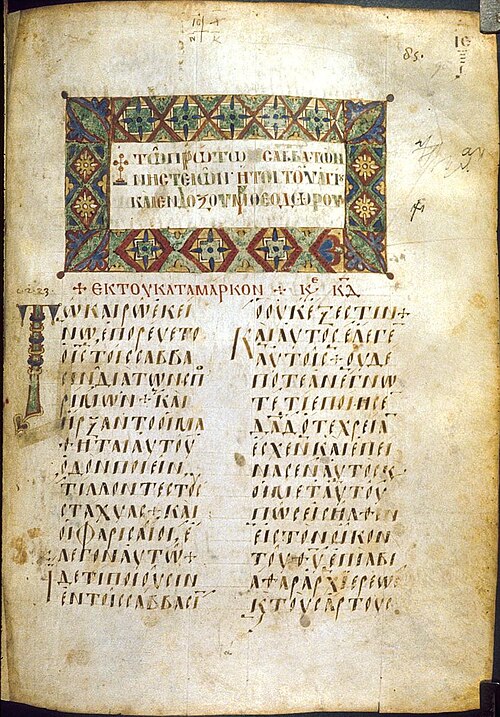 85.
ΤΩ ΠΡΩΤΩ CΑΒΒΑΤΩΝ
ΝΗCΤΕΙΩΝ ΗΤΟΙ ΤΟΥ ΑΓΙ
ΚΑΙ ΕΝΔΟΞΟΥ Μ ΘΕΟΔΩΡΟΥ
+ ΕΚ ΤΟΥ ΚΑΤΑ ΜΑΡΚΟΝ + Κε ΚΔ
2.23.
ΤΩ ΚΑΙΡΩ ΕΚΕΙ
ΝΩ ΕΠΟΡΕΥΕΤΟ
Ο ΙC ΤΟΙC CΑΒΒΑ
CΙΝ ΔΙΑ ΤΩΝ CΠΟ
ΡΙΜΩΝ + ΚΑΙ
ΗΡΞΑΝΤΟ ΟΙ ΜΑ
ΘΗΤΑΙ ΑΥΤΟΥ
ΟΔΟΝ ΠΟΙΕΙΝ
ΤΙΛΛΟΝΤΕC ΤΟΥC
CΤΑΧΥΑC + ΚΑΙ
ΟΙ ΦΑΡΙCΑΙΟΙ Ε
ΛΕΓΟΝ ΑΥΤΩ +
ΙΔΕ ΤΙ ΠΟΙΟΥCΙΝ
ΕΝ ΤΟΙC CΑΒΒΑCΙ
Ο ΟΥΚ ΕΞΕCΤΙΝ +
ΚΑΙ ΑΥΤΟC ΕΛΕΓΕ
ΑΥΤΟΙC + ΟΥΔΕ
ΠΟΤΕ ΑΝΕΓΝΩ
ΤΕ ΤΙ ΕΠΟΙΗCΕ
ΔΑΔ ΟΤΕ ΧΡΕΙΑ
ΕCΧΕΝ ΚΑΙ ΕΠΕΙ
ΝΑCΕΝ ΑΥΤΟC Κ
ΟΙ ΜΕΤ ΑΥΤΟΥ
ΠΩC ΕΙCΗΛΘΕΝ
ΕΙC ΤΟΝ ΟΙΚΟΝ
ΤΟΥ ΘΥ ΕΠΙ ΑΒΙ
ΑΘΑΡ ΑΡΧΙΕΡΕΩC
Κ ΤΟΥC ΑΡΤΟΥC